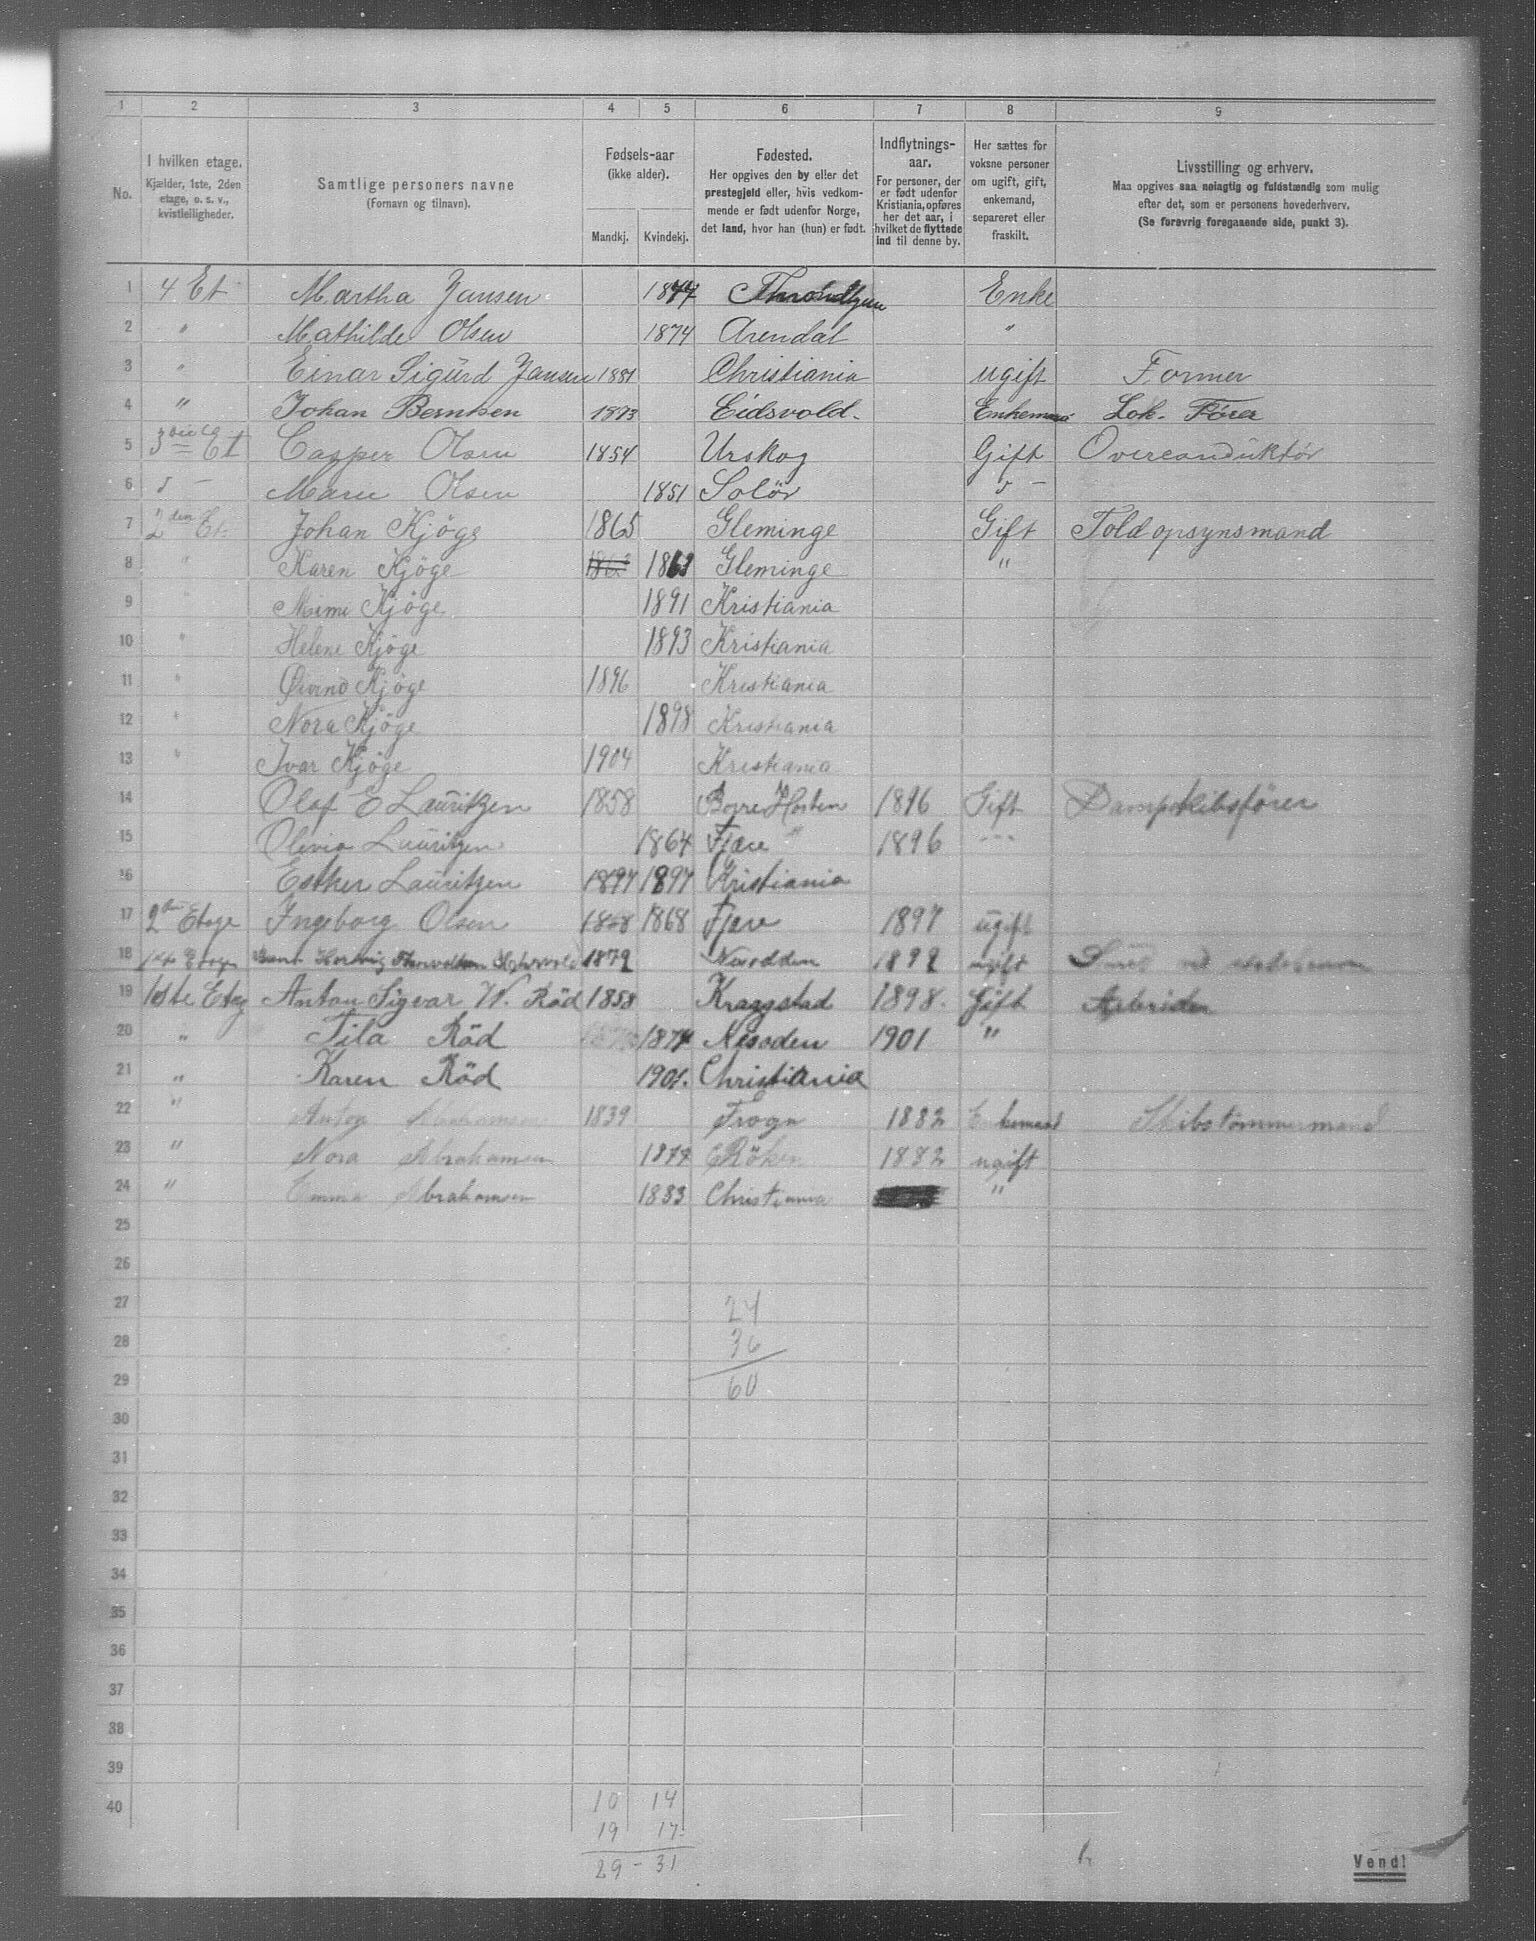 1 2 3 4 5 6 7 8 9
No.
I hvilken etage.
Kjælder, 1ste, 2den
etage, o. s. v.,
kvistleiligheder.
Samtlige personers navne
(Fornavn og tilnavn).
Fødsels-aar
(ikke alder).
Mandkj. Kvindekj.
Fødested.
Her opgives den by eller det
prestegjeld eller, hvis vedkom-
mende er født udenfor Norge,
det land, hvor han (hun) er født.
Indflytnings-
aar.
For personer, der
er født udenfor
Kristiania, opføres
her det aar, i
hvilket de flyttede
ind til denne by.
Her sættes for
voksne personer
om ugift, gift,
enkemand,
separeret eller
fraskilt.
Livsstilling og erhverv.
Maa opgives saa nøiagtig og fuldstændig som mulig
efter det, som er personens hovederhverv.
(Se forøvrig foregaaende side, punkt 3).
1 4 Et Martha Jansen 1847 Throndhjem Enke
2 " Mathilde Olsen 1874 Arendal "
3 " Einar Sigurd Jansen 1881 Christiania ugift Former
4 " Johan Berntsen 1873 Eidsvold. Enkemand Lok. Fører
5 3die Et Casper Olsen 1854 Urskog Gift Overconduktör
6 Marie Olsen 1851 Solör
7 2den Et. Johan Kjöge 1865 Gleminge Gift Toldopsynsmand
8 " Karen Kjöge 1863 Gleminge "
9 " Mimi Kjöge 1891 Kristiania
10 " Helene Kjöge 1893 Kristiania
11 " Øivind Kjöge 1896 Kristiania
12 " Nora Kjöge 1898 Kristiania
13 " Ivar Kjöge 1904 Kristiania
14 Olaf E Lauritzen 1858 Borre Horten 1896 Gift Dampskibsfører
15 Olivia Lauritzen 1864 Fjære " 1896 "
16 Esther Lauritzen 1897 1897 Kristiania
17 2den Etage Ingeborg Olsen 1868 1868 Fjære 1897 ugift
18 Etage 1872 Næsodden 1892 ugift
19 1ste Etag Anton Sigvar W. Röd 1858 Kragstad 1898. Gift Arbeider
20 " Tila Röd 1874 Nesoden 1901 "
21 " Karen Röd 1901. Christiania
22 " Anton Abrahamsen 1839 Frogn 1882 Enkemand Skibstömmermand
23 " Nora Abrahamsen 1877 Röken 1882 ugift
24 " Emma Abrahamsen 1883 Christiania "
25
26
27 24
28 36
29 60
30
31
32
33
34
35
36
37
38
39
40 10 14
19 17
29 - 31
Vend!